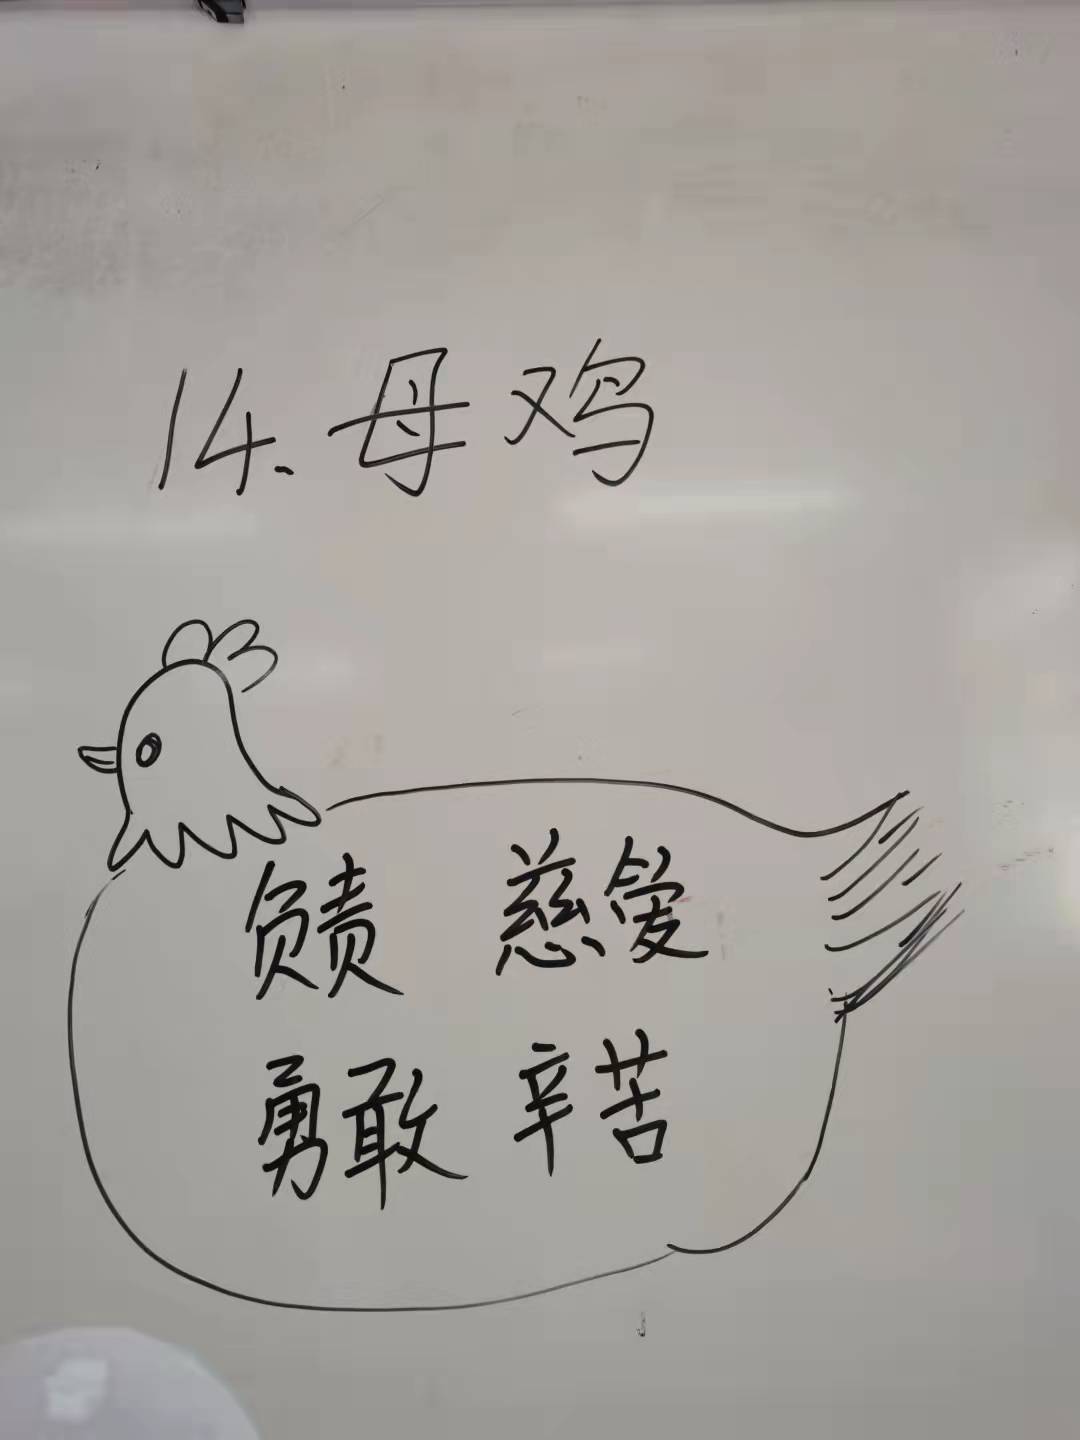 14.母鸡
负责 慈爱
勇敢 辛苦